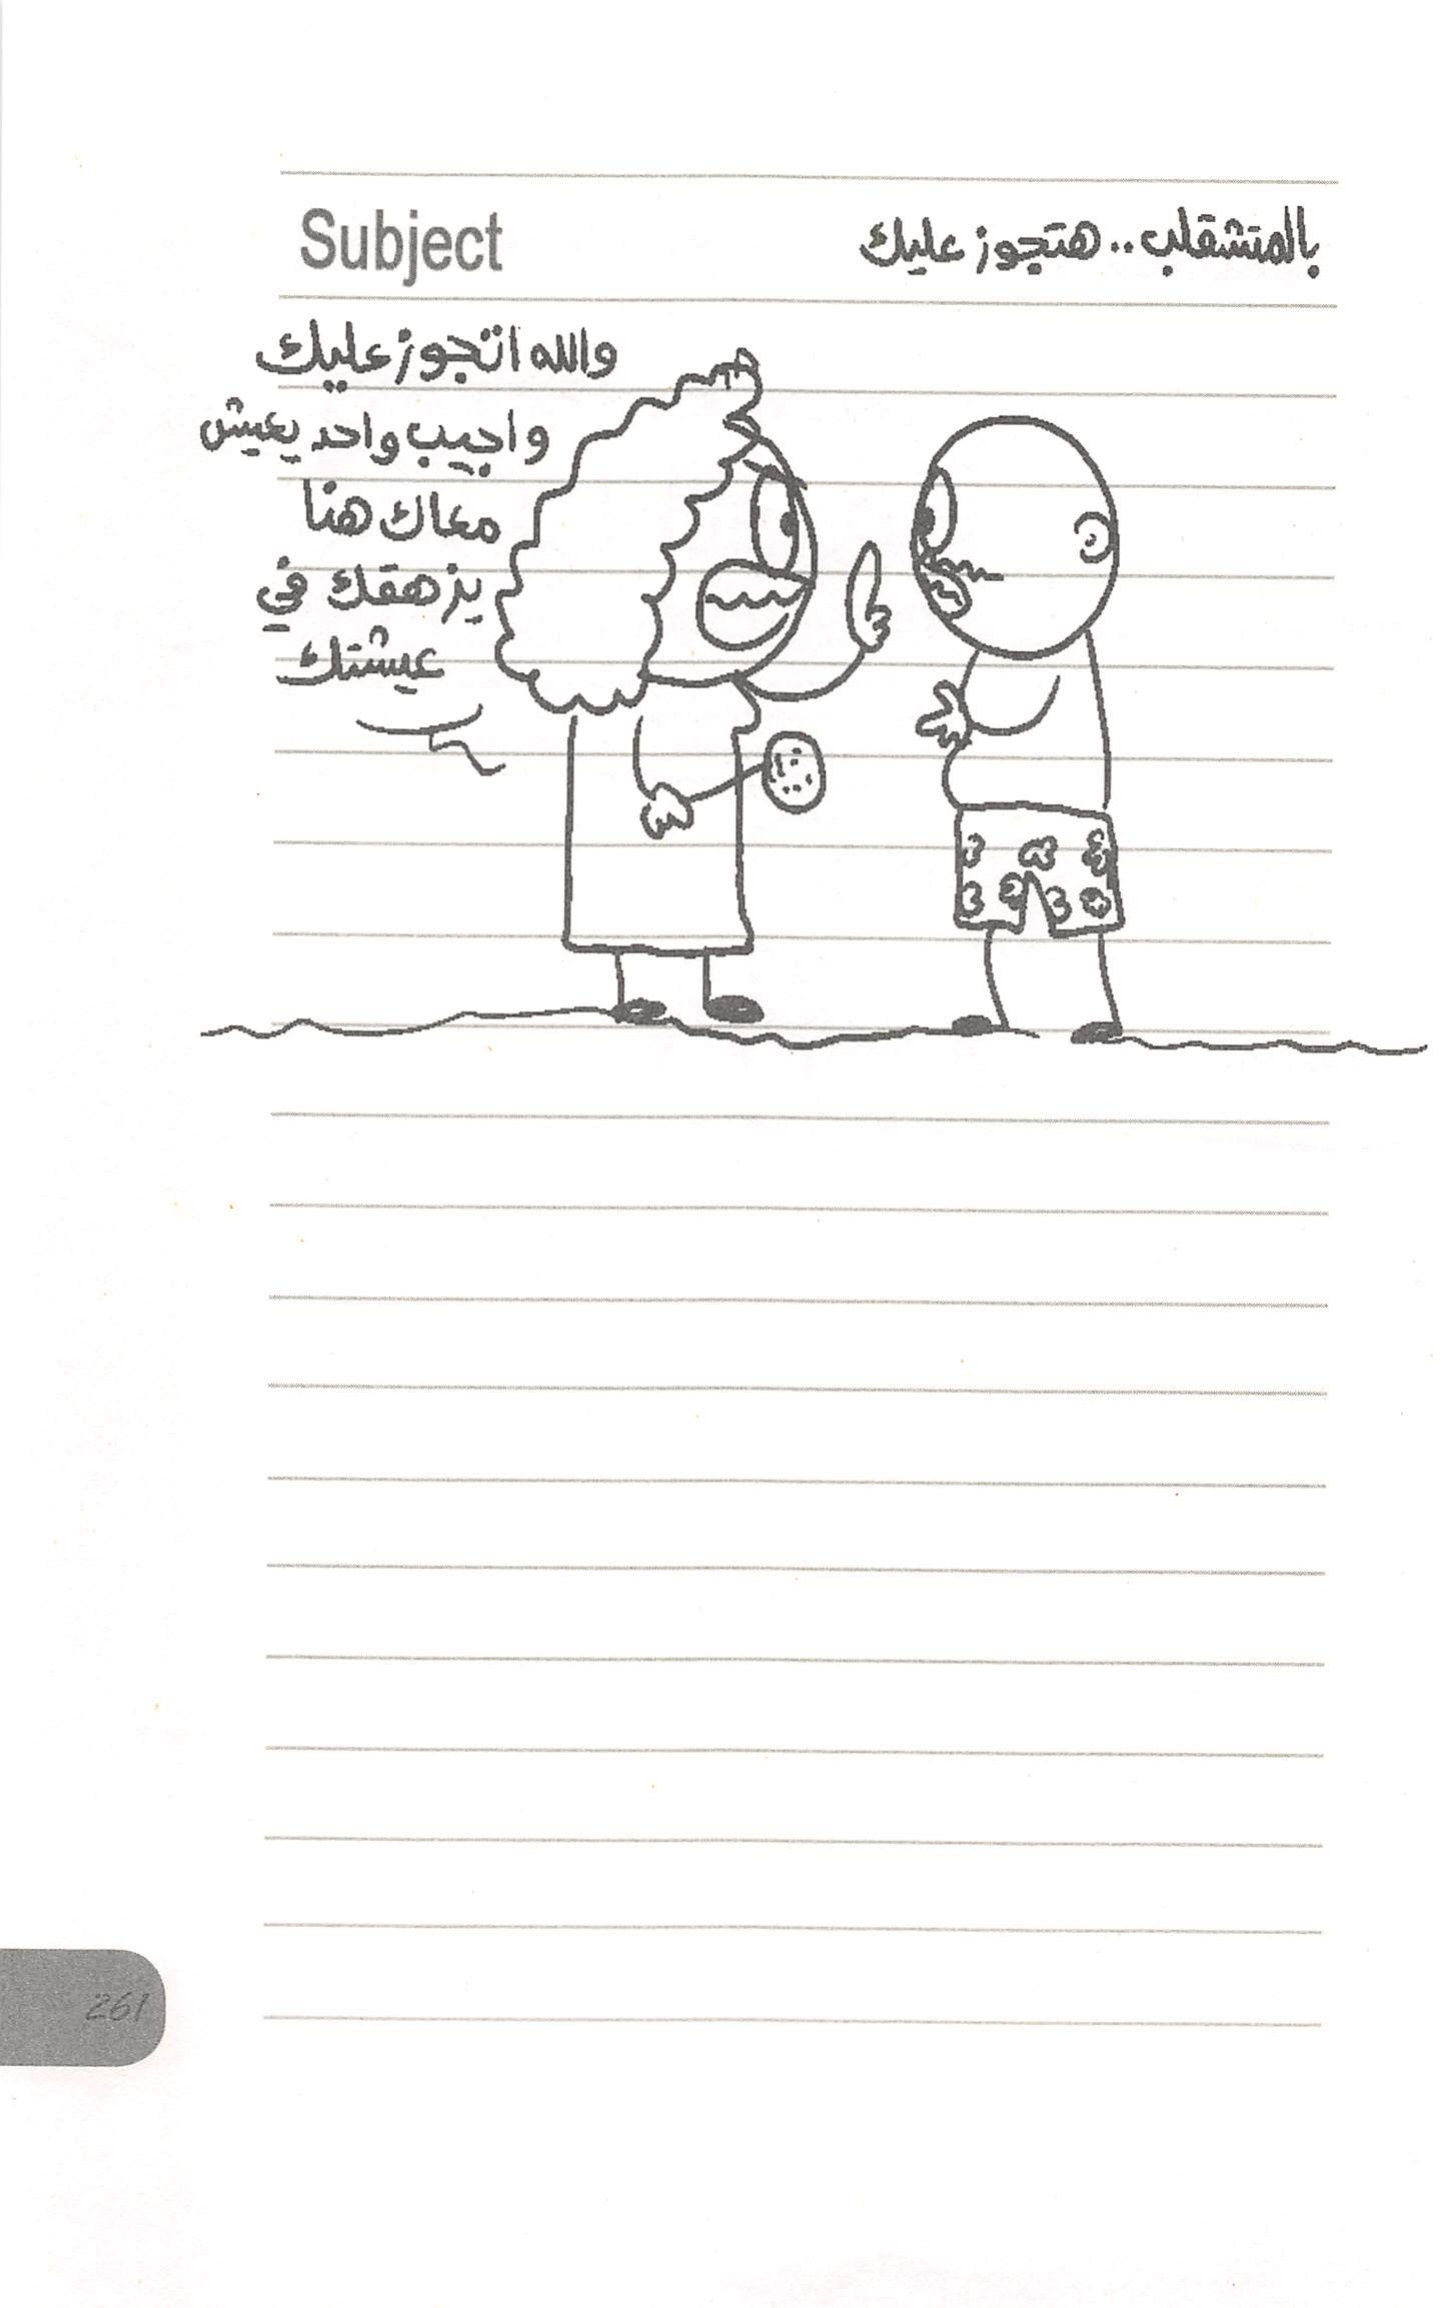 Subject
بالمتشقلب.. هتجوز عليك
والله اتجوز عليك
واجيب واحد يعيش
معاك هنا
يزهقك في
عيشتك
261